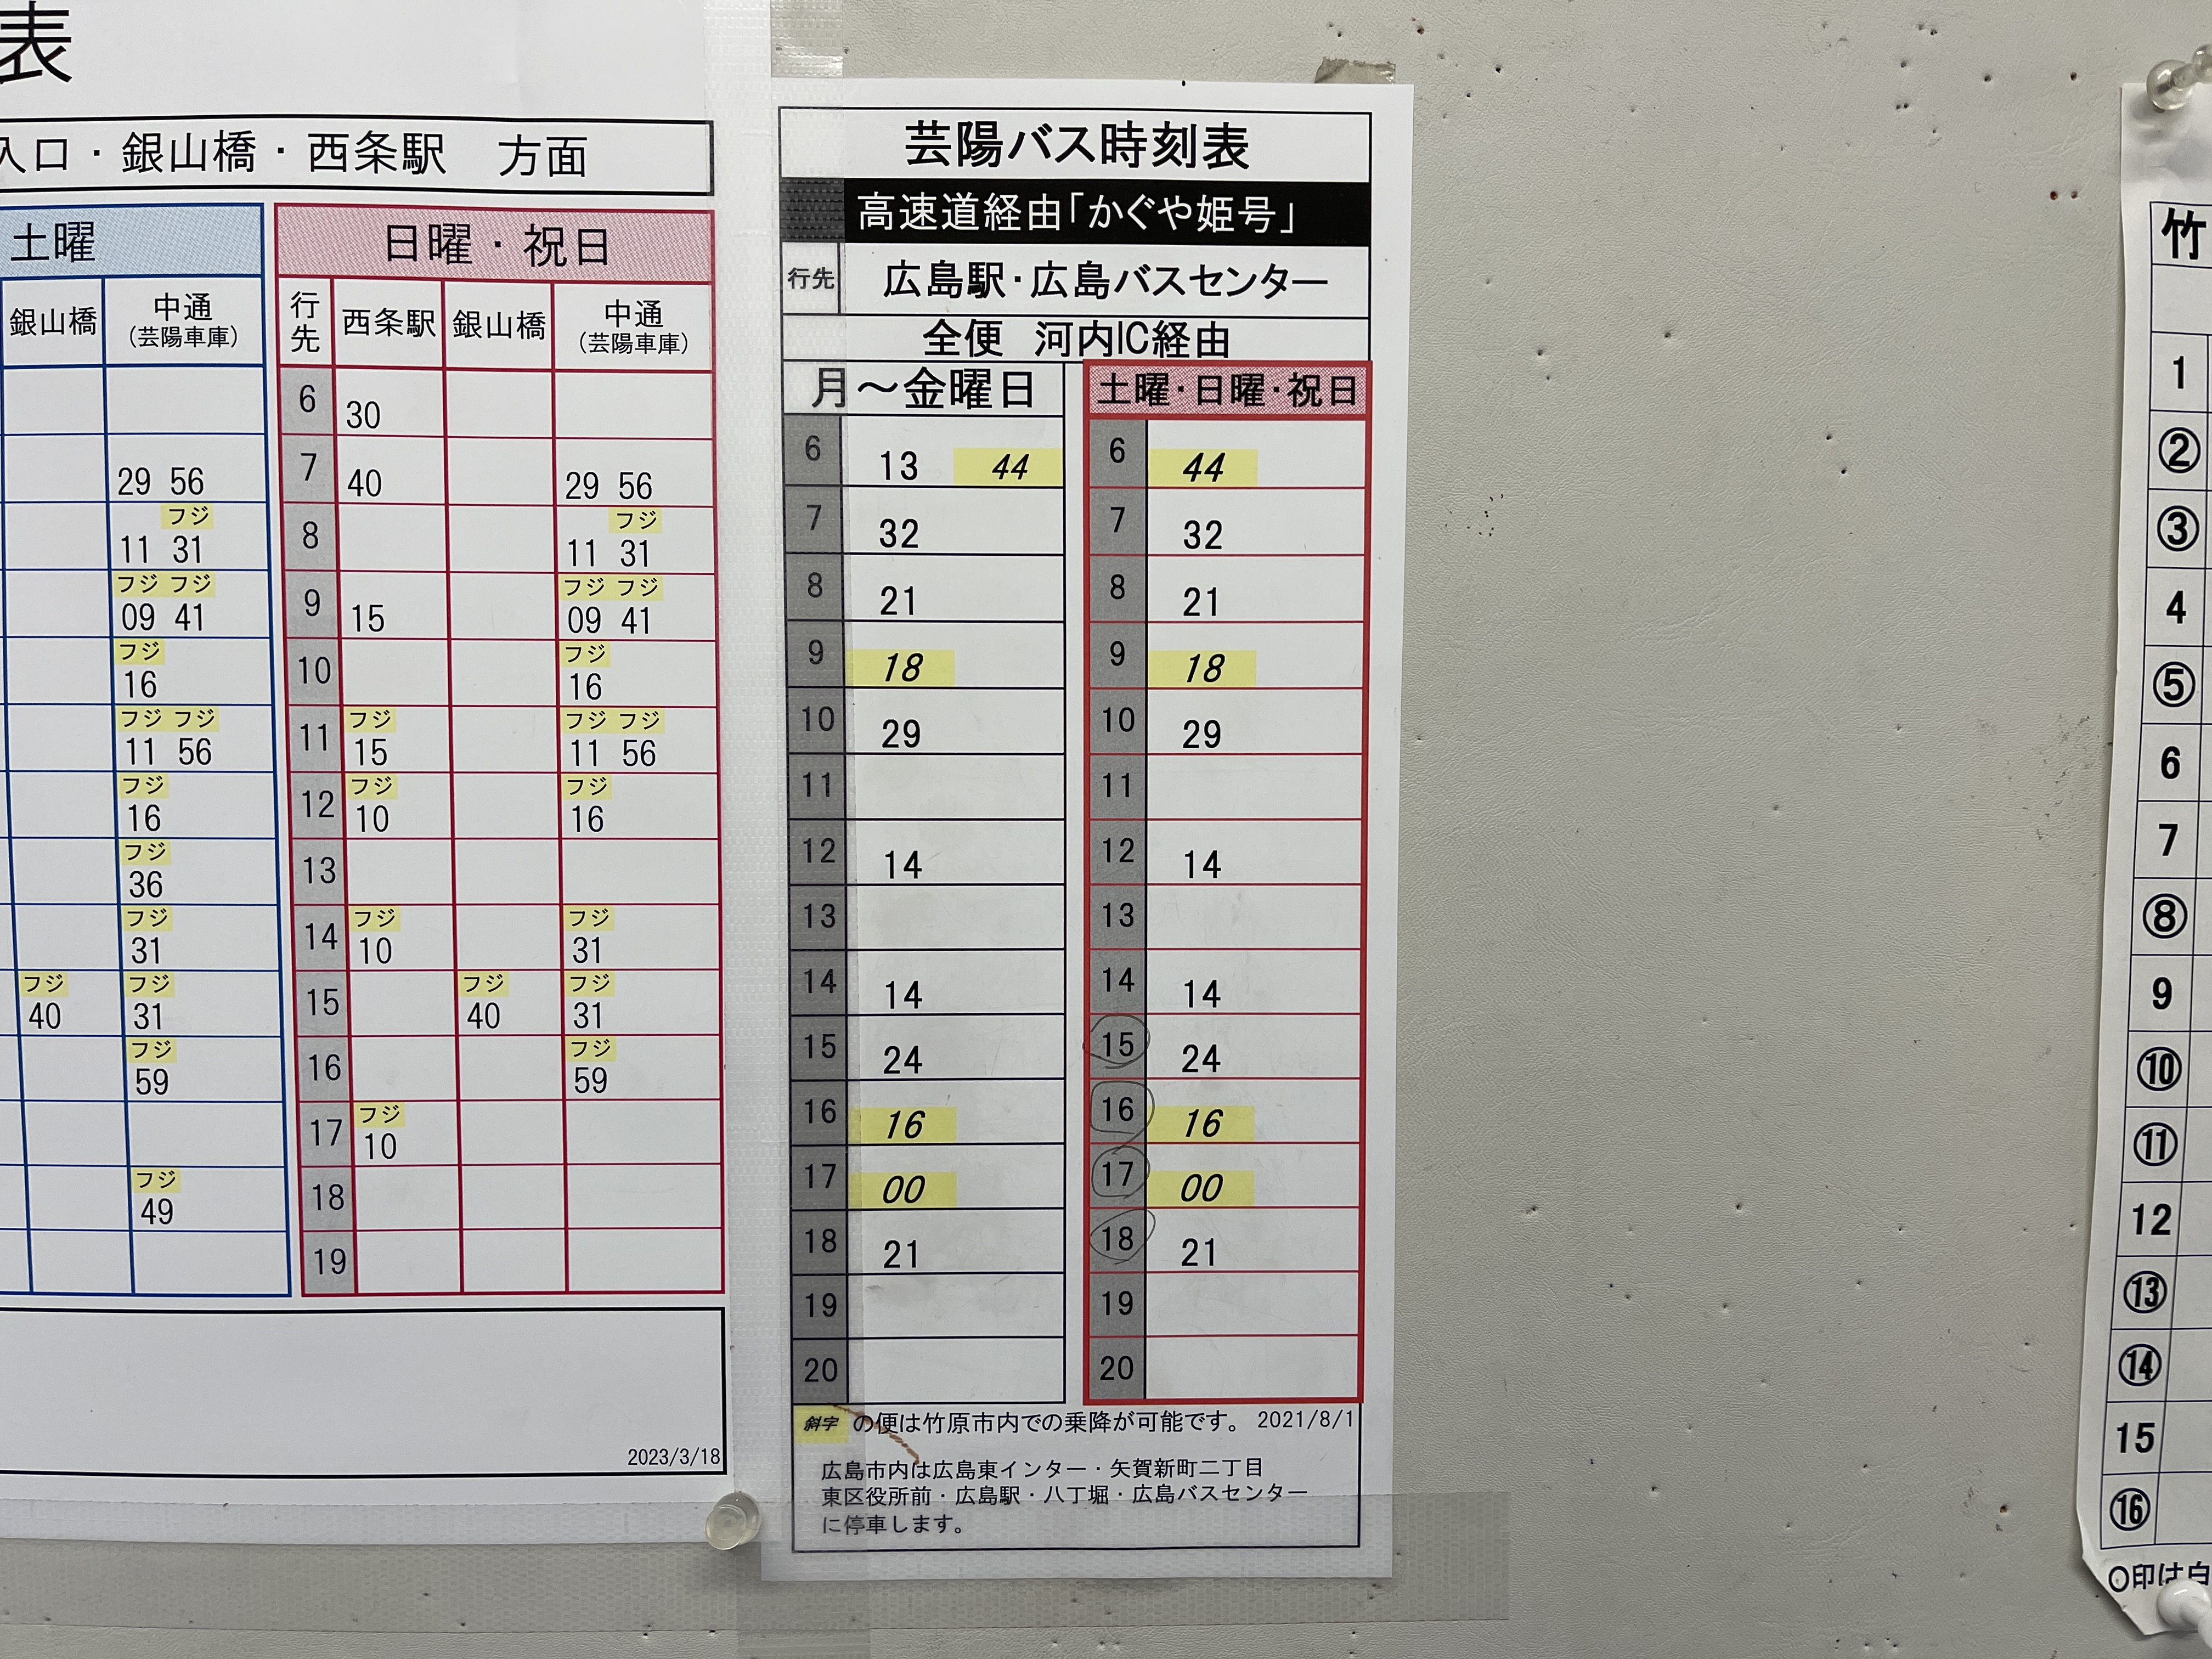 表
入口・銀山橋・西条駅　方面
土曜
銀山橋 中通
（芸陽車庫）
29 56
フジ
11 31
フジ フジ
09 41
フジ
16
フジ フジ
11 56
フジ
16
フジ
36
フジ
31
フジ フジ
40 31
フジ
59
フジ
49
日曜・祝日
行先 西条駅 銀山橋 中通
（芸陽車庫）
6 30
7 40 29 56
フジ
8 11 31
フジ フジ
9 15 09 41
フジ
10 16
フジ フジ フジ
11 15 11 56
フジ フジ
12 10 16
13
フジ フジ
14 10 31
フジ フジ
15 40 31
フジ
16 59
フジ
17 10
18
19
2023/3/18
芸陽バス時刻表
高速道経由「かぐや姫号」
行先 広島駅・広島バスセンター
全便　河内IC経由
月～金曜日
6 13 44
7 32
8 21
9 18
10 29
11
12 14
13
14 14
15 24
16 16
17 00
18 21
19
20
土曜・日曜・祝日
6 44
7 32
8 21
9 18
10 29
11
12 14
13
14 14
15 24
16 16
17 00
18 21
19
20
斜字 の便は竹原市内での乗降が可能です。 2021/8/1
広島市内は広島東インター・矢賀新町二丁目
東区役所前・広島駅・八丁堀・広島バスセンター
に停車します。
竹
1
②
③
4
⑤
6
7
⑧
9
⑩
⑪
12
⑬
⑭
15
⑯
〇印は白